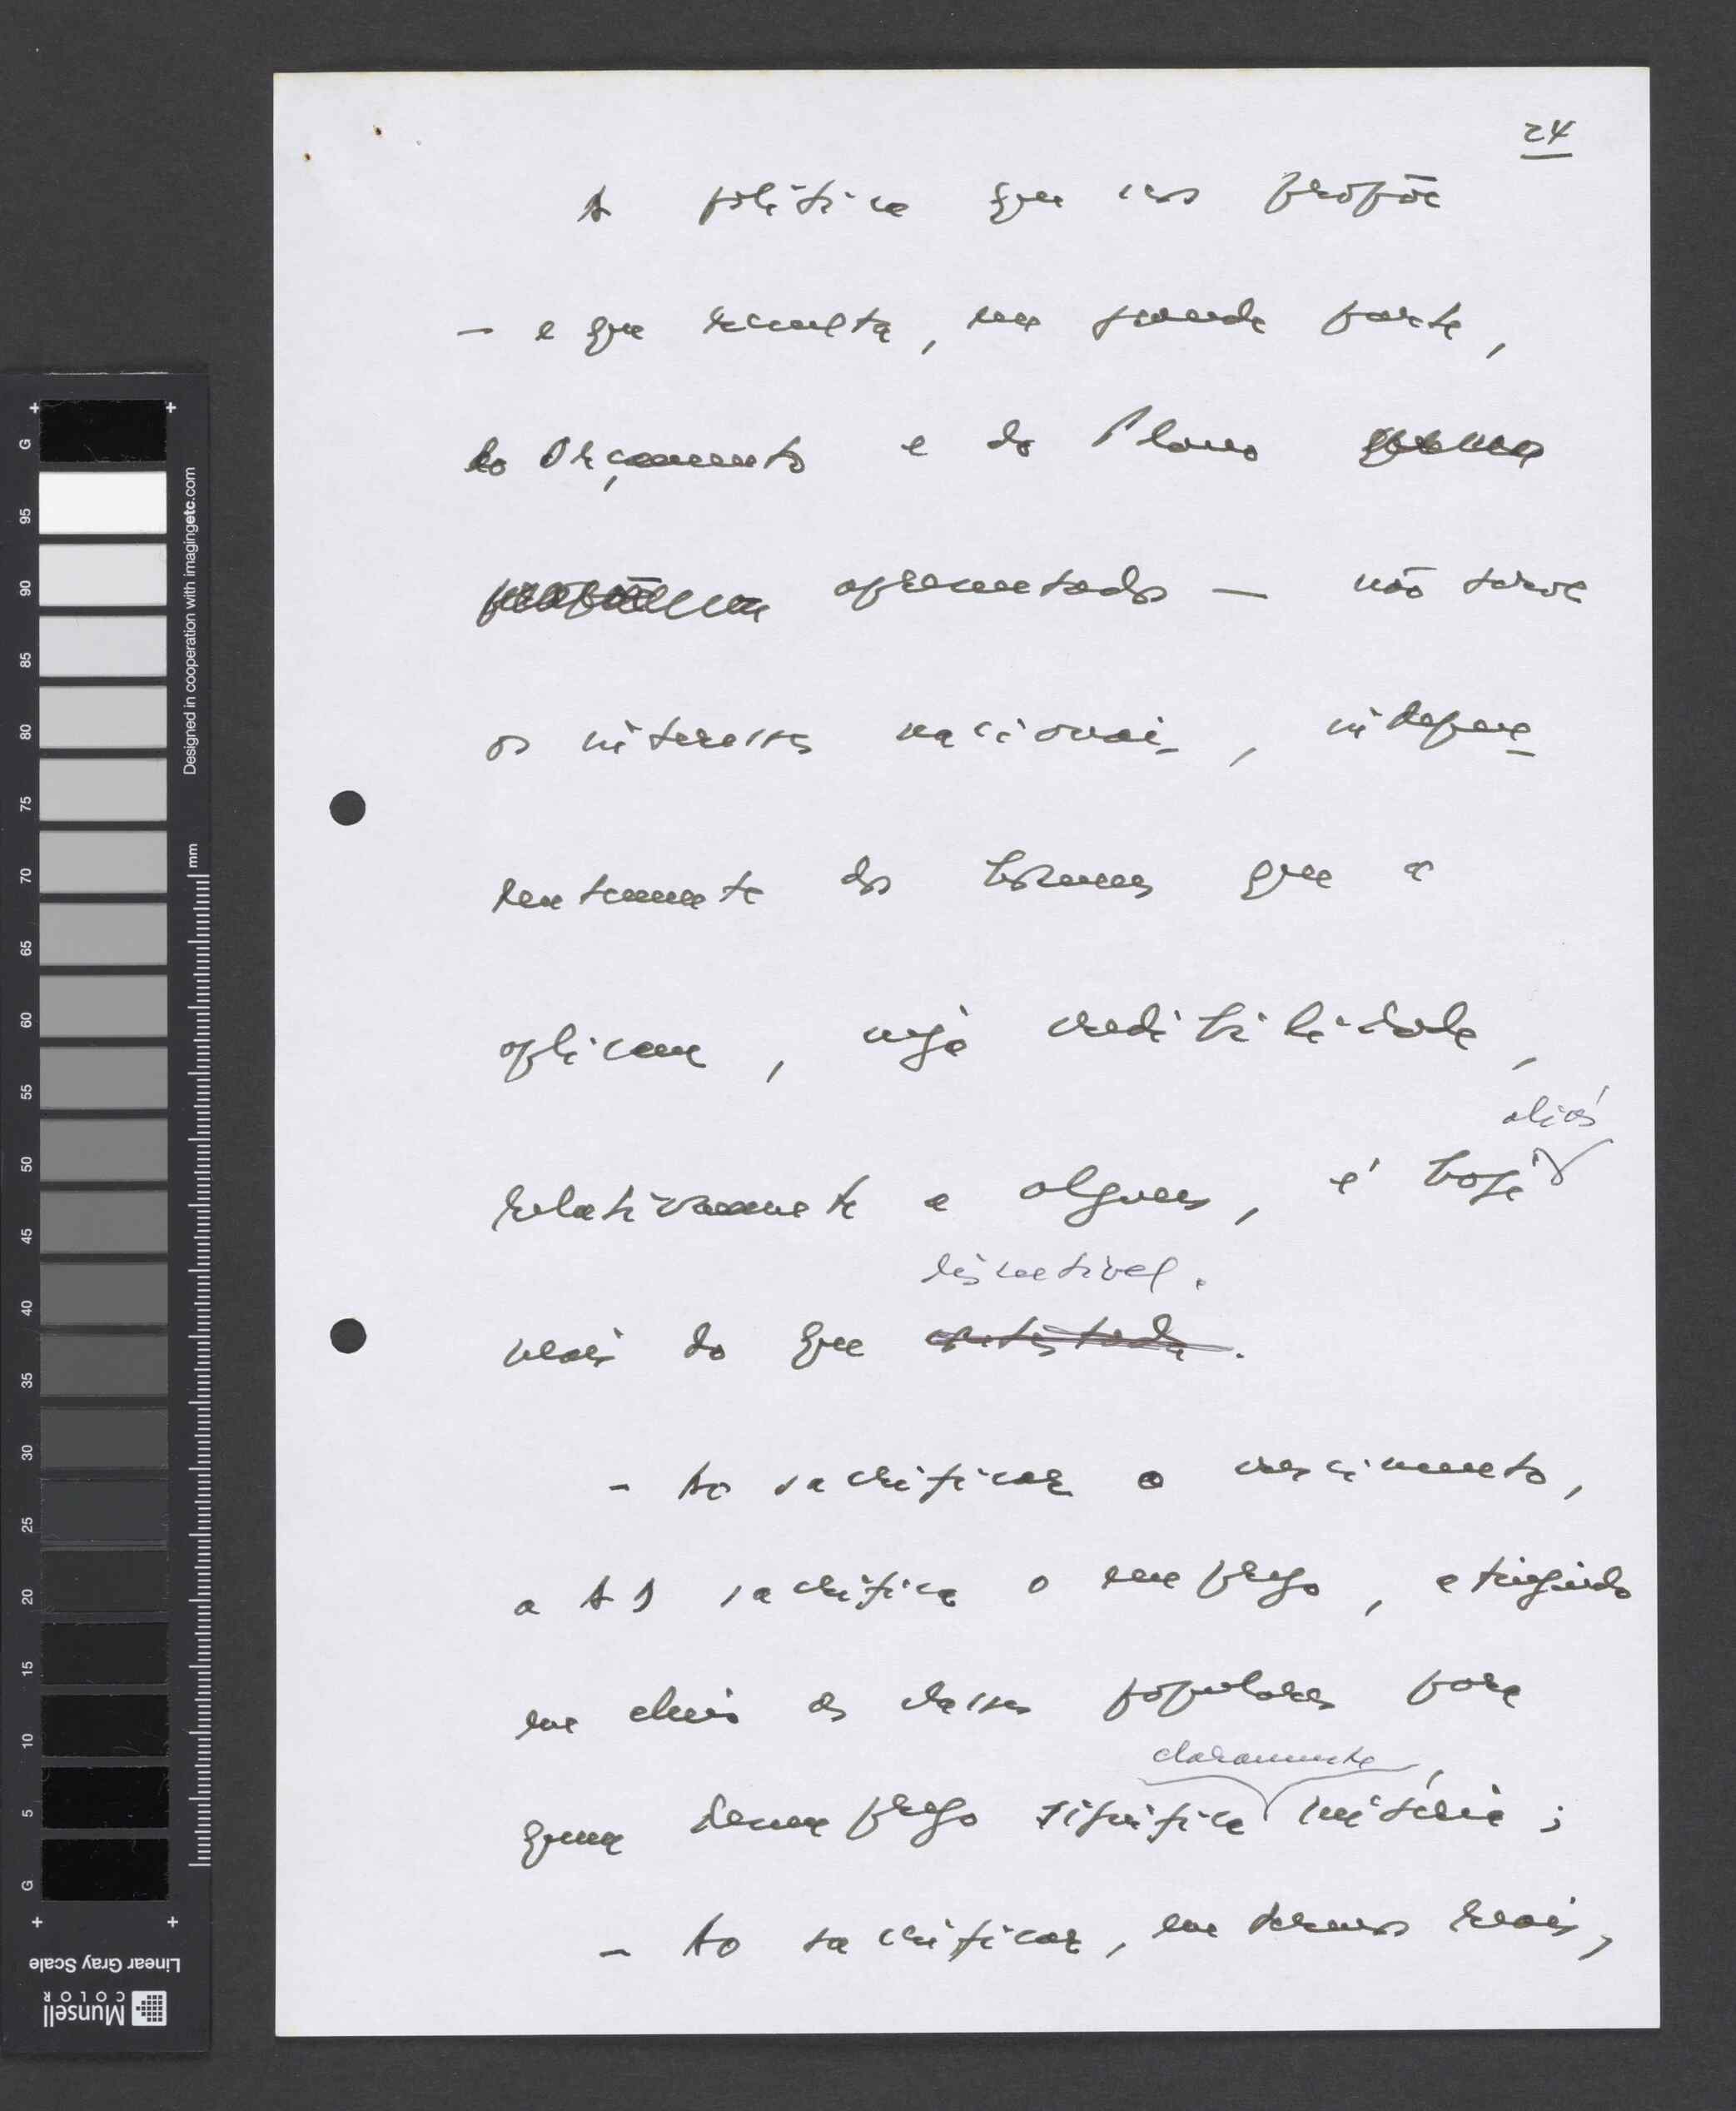 24
A política que nos propõe
- e que resulta, em grande parte,
do Orçamento e do Plano
apresentados — não serve
os interesses nacionais, indepen
dentemente dos homens que a
aplicam, cuja credibilidade,
aliás
relativamente a alguns, é hoje
discutível.
mais do que contestada.
- Ao sacrificar o crescimento,
a AD sacrifica o emprego, atingindo
em cheio as classes populares para
claramente,
quem desemprego significa miséria;
- Ao sacrificar, em termos reais,
G
95
90
85
80
75
70
65
60
55
50
45
40
35
30
25
20
15
10
5
G
mm
Designed in cooperation with imagingetc.com
Linear Gray Scale
Munsell
COLOR